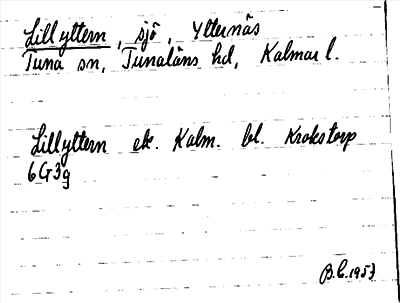 Lillyttern, sjö, Ytternäs
Tuna sn, Tunaläns hd, Kalmar l.
Lillyttern ek. Kalm. bl. Krokstorp
6G3g
B.L. 1957